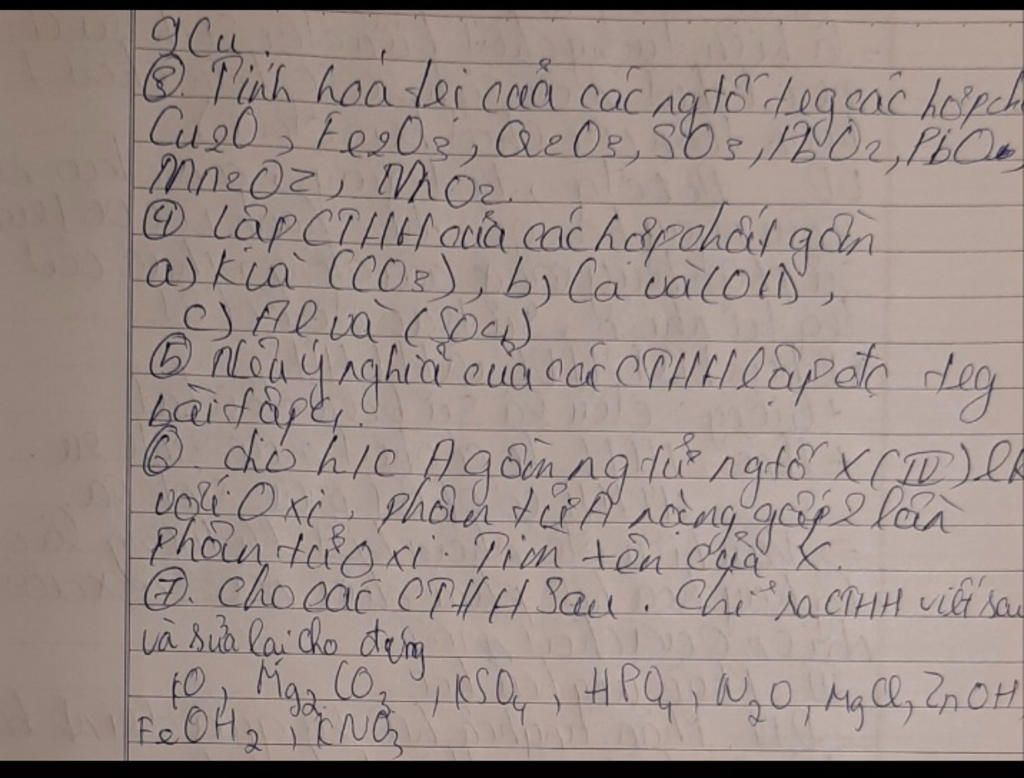 gCu.
③. Tính hoá trị của các ngtố trg các hợp ch
Cu2O, Fe2O3, Al2O3, SO3, PbO2, PbO,
Mn2O7, MnO2.
④ Lập CTHH của các hợp chất gồm
a) K và (CO3), b) Ca và (OH),
c) Al và (SO4)
⑤ Nêu ý nghĩa của các CTHH lập đc trg
bài tập 4.
⑥. Cho h/c A gồm ng tử ngtố X (IV) lk
với Oxi, phân tử A nặng gấp 2 lần
phân tử Oxi. Tìm tên của X.
⑦. Cho các CTHH sau. Chỉ ra CTHH viết sai
và sửa lại cho đúng
KO, Mg2CO3, KSO4, HPO4, N2O, MgCl, ZnOH
FeOH2, KNO3